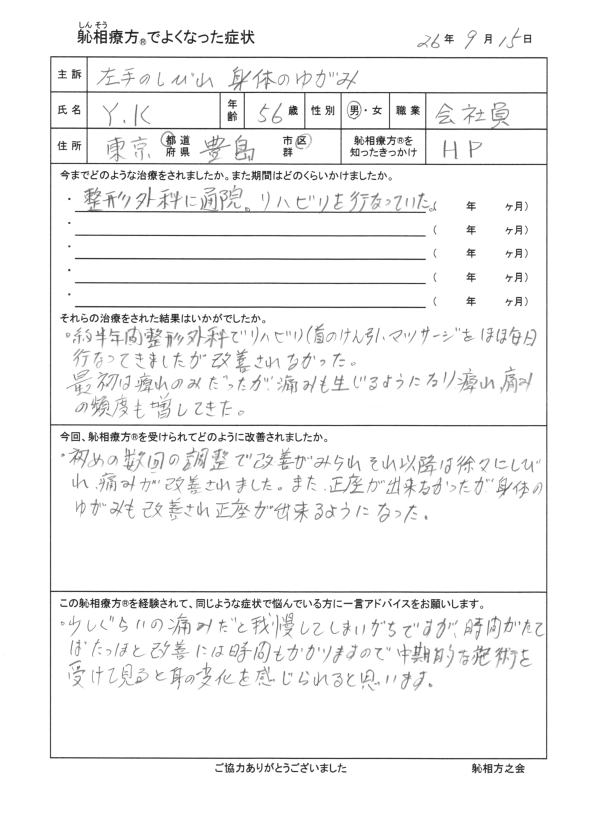 しん そう
恥相療方®でよくなった症状
26年 9月 15日
主訴 左手のしびれ 身体のゆがみ
氏名 Y.K 年齢 56歳 性別 男・女 職業 会社員
住所 東京 都道府県 豊島 市区群 恥相療方®を知ったきっかけ HP
今までどのような治療をされましたか。また期間はどのくらいかけましたか。
・整形外科に通院。リハビリを行なっていた。( 年 ヶ月)
・ ( 年 ヶ月)
・ ( 年 ヶ月)
・ ( 年 ヶ月)
・ ( 年 ヶ月)
それらの治療をされた結果はいかがでしたか。
・約半年間整形外科でリハビリ(首のけん引、マッサージをほぼ毎日
行なってきましたが改善されなかった。
最初は痺れのみだったが、痛みも生じるようになり痺れ、痛み
の頻度も増してきた。
今回、恥相療方®を受けられてどのように改善されましたか。
・初めの数回の調整で改善がみられそれ以降は徐々にしび
れ、痛みが改善されました。また、正座が出来なかったが身体の
ゆがみも改善され正座が出来るようになった。
この恥相療方®を経験されて、同じような症状で悩んでいる方に一言アドバイスをお願いします。
・少しぐらいの痛みだと我慢してしまいがちですが、時間がたて
ばたつほど改善には時間もかかりますので中期的な施術を
受けて見ると耳の変化を感じられると思います。
ご協力ありがとうございました
恥相方之会